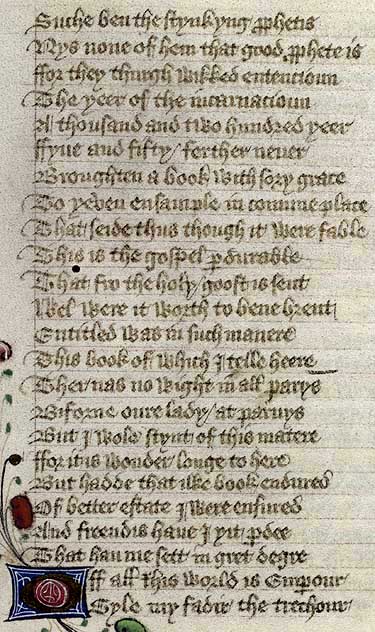 Suche ben the stynkyng prophetis
Nys none of hem that good prophete is
ffor they thurgh wikked entencioun
The yeer of the incarnacioun
A thousand and two hundred yeer
ffyue and fifty / ferther neuer
Broughten a book with sory grace
To yeuen ensample in comune place
That seide thus though it were fable
This is the gospel perdurable
That fro the holy goost is sent
Wel were it worth to bene brent
Entitled was in such manere
This book of which I telle heere
Ther nas no wight in all parys
Biforne oure lady / at paruys
But I wole stynt of this matere
ffor it is wonder longe to here
But hadde that ilke book endured
Of better estate I were ensured
And freendis haue I yit pdee
That haue me sett in gret degre
Off all this world is Emperour
Gyle my fadir the trechour